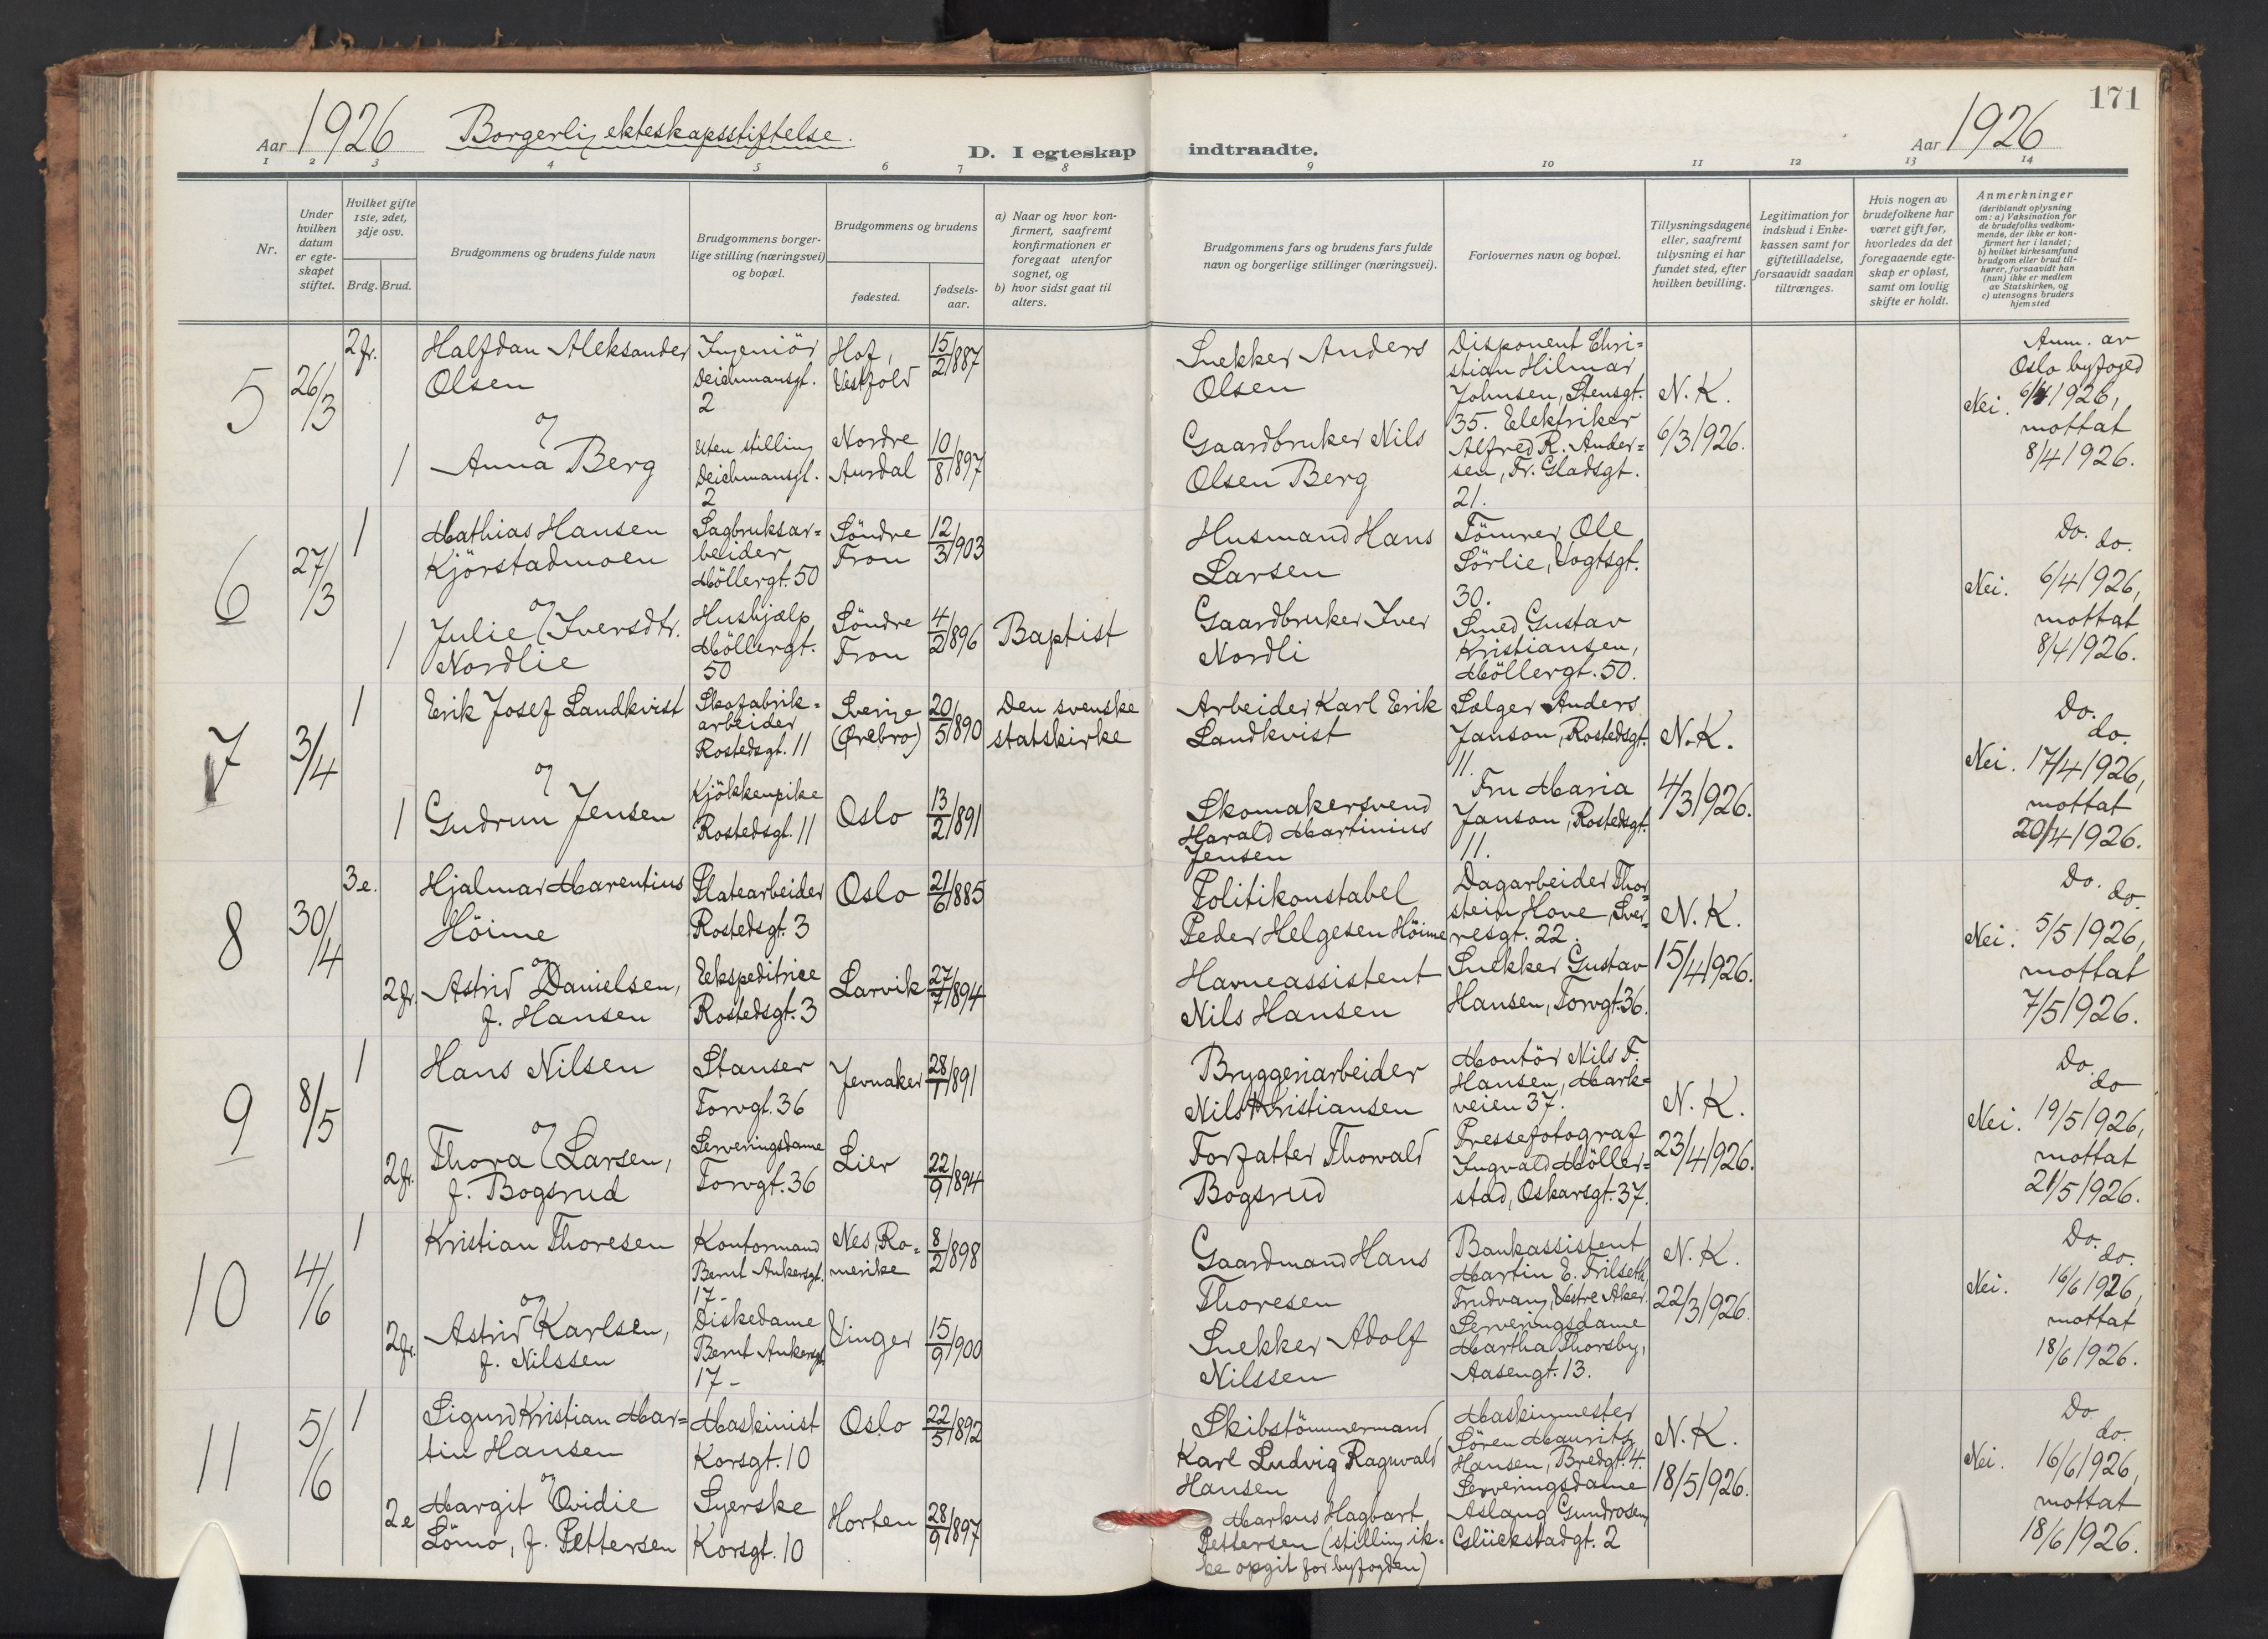 171
Aar 1926 Borgerlig ekteskapsstiftelse.
D. I egteskap indtraadte.
Aar 1926
1 2 3 4 5 6 7 8 9 10 11 12 13 14
Nr.
Under hvilken datum er egteskapet stiftet.
Hvilket gifte 1ste, 2det, 3dje osv.
Brdg. Brud.
Brudgommens og brudens fulde navn
Brudgommens borgerlige stilling (næringsvei) og bopæl.
Brudgommens og brudens
fødested.
fødselsaar.
a) Naar og hvor konfirmert, saafremt konfirmationen er foregaat utenfor sognet, og
b) hvor sidst gaat til alters.
Brudgommens fars og brudens fars fulde navn og borgerlige stillinger (næringsvei).
Forlovernes navn og bopæl.
Tillysningsdagene eller, saafremt tillysning ei har fundet sted, efter hvilken bevilling.
Legitimation for indskud i Enkekassen samt for giftetilladelse, forsaavidt saadan tiltrænges.
Hvis nogen av brudefolkene har været gift før, hvorledes da det foregaaende egteskap er opløst, samt om lovlig skifte er holdt.
Anmerkninger
(deriblandt oplysning om: a) Vaksination for de brudefolks vedkommende, der ikke er konfirmert her i landet;
b) hvilket kirkesamfund brudgom eller brud tilhører, forsaavidt han (hun) ikke er medlem av Statskirken, og
c) utensogns bruders hjemsted
5
26/3
2 fr.
Halfdan Aleksander
Olsen
og
1
Anna Berg
Ingeniör
Deichmansgt.
2
Uten stilling
Deichmansgt.
2
Hof,
Vestfold
15/2 1887
Nordre
Aurdal
10/8 1897
Snekker Anders
Olsen
Gaardbruker Nils
Olsen Berg
Disponent Chri=
stian Hilmar
Johnsen, Stensgt.
35. Elektriker
Alfred R. Ander=
sen, Fr. Gladsgt.
21.
N. K.
6/3 1926.
Anm. av
Oslo byfoged
Nei. 6/4 1926,
mottat
8/4 1926.
6
27/3
1
Mathias Hansen
Kjörstadmoen
og
1
Julie Iversdtr.
Nordlie
Sagbruksar=
beider
Möllergt. 50
Hushjælp
Möllergt.
50
Söndre
Fron
12/3 1903
Söndre
Fron
4/2 1896
Baptist
Husmand Hans
Larsen
Gaardbruker Iver
Nordli
Tömrer Ole
Sörlie, Vogtsgt.
30.
Smed Gustav
Kristiansen,
Möllergt. 50.
Do. do.
Nei. 6/4 1926,
mottat
8/4 1926.
7
3/4
1
Erik Josef Landkvist
og
1
Gudrun Jensen
Skofabrik=
arbeider
Rostedsgt. 11
Kjökkenpike
Rostedsgt. 11
Sverige
(Örebro)
20/5 1890
Oslo
13/2 1891
Den svenske
statskirke
Arbeider Karl Erik
Landkvist
Skomakersvend
Harald Martinius
Jensen
Sælger Anders
Janson, Rostedsgt.
11.
Fru Maria
Janson, Rostedsgt.
11.
N. K.
4/3 1926.
Do. do.
Nei. 17/4 1926,
mottat
20/4 1926.
8
30/4
3 e.
Hjalmar Marentius
Höime
og
2 fr.
Astrid Danielsen,
f. Hansen
Platearbeider
Rostedsgt. 3
Ekspeditrice
Rostedsgt. 3
Oslo
21/6 1885
Larvik
27/7 1894
Politikonstabel
Peder Helgesen Höime
Havneassistent
Nils Hansen
Dagarbeider Thor=
stein Hove, Sver=
resgt. 22.
Snekker Gustav
Hansen, Torvgt. 36.
N. K.
15/4 1926.
Do. do.
Nei. 5/5 1926,
mottat
7/5 1926.
9
8/5
1
Hans Nilsen
og
2 fr.
Thora Larsen,
f. Bogsrud
Stanser
Torvgt. 36
Serveringsdame
Torvgt. 36
Jevnaker
28/1 1891
Lier
22/9 1894
Bryggeriarbeider
Nils Kristiansen
Forfatter Thorvald
Bogsrud
Montör Nils F.
Hansen, Mark=
veien 37.
Pressefotograf
Ingvald Möller=
stad, Oskarsgt. 37.
N. K.
23/4 1926.
Do. do
Nei. 19/5 1926,
mottat
21/5 1926.
10
4/6
1
Kristian Thoresen
og
2 fr.
Astrid Karlsen,
f. Nilssen
Kontormand
Bernt Ankersgt.
17-
Diskedame
Bernt Ankersgt.
17-
Nes, Ro=
merike
8/2 1898
Vinger
15/9 1900
Gaardmand Hans
Thoresen
Snekker Adolf
Nilssen
Bankassistent
Martin E. Trilseth,
Trudvang, Vestre Aker.
Serveringsdame
Martha Thorsby,
Aasengt. 13.
N. K.
22/3 1926.
Do. do.
Nei. 16/6 1926,
mottat
18/6 1926.
11
5/6
1
Sigurd Kristian Mar=
tin Hansen
og
2 e
Margit Ovidie
Lömo, f. Pettersen
Maskinist
Korsgt. 10
Syerske
Korsgt. 10
Oslo
22/5 1892
Horten
28/9 1897
Skibstömmermand
Karl Ludvig Ragnvald
Hansen
Markus Hagbart
Pettersen (stilling ik=
ke opgit for byfogden)
Maskinmester
Sören Maurits
Hansen, Bredgt. 4.
Serveringsdame
Aslaug Gundrosen,
Glückstadgt. 2
N. K.
18/5 1926.
Do. do.
Nei. 16/6 1926,
mottat
18/6 1926.